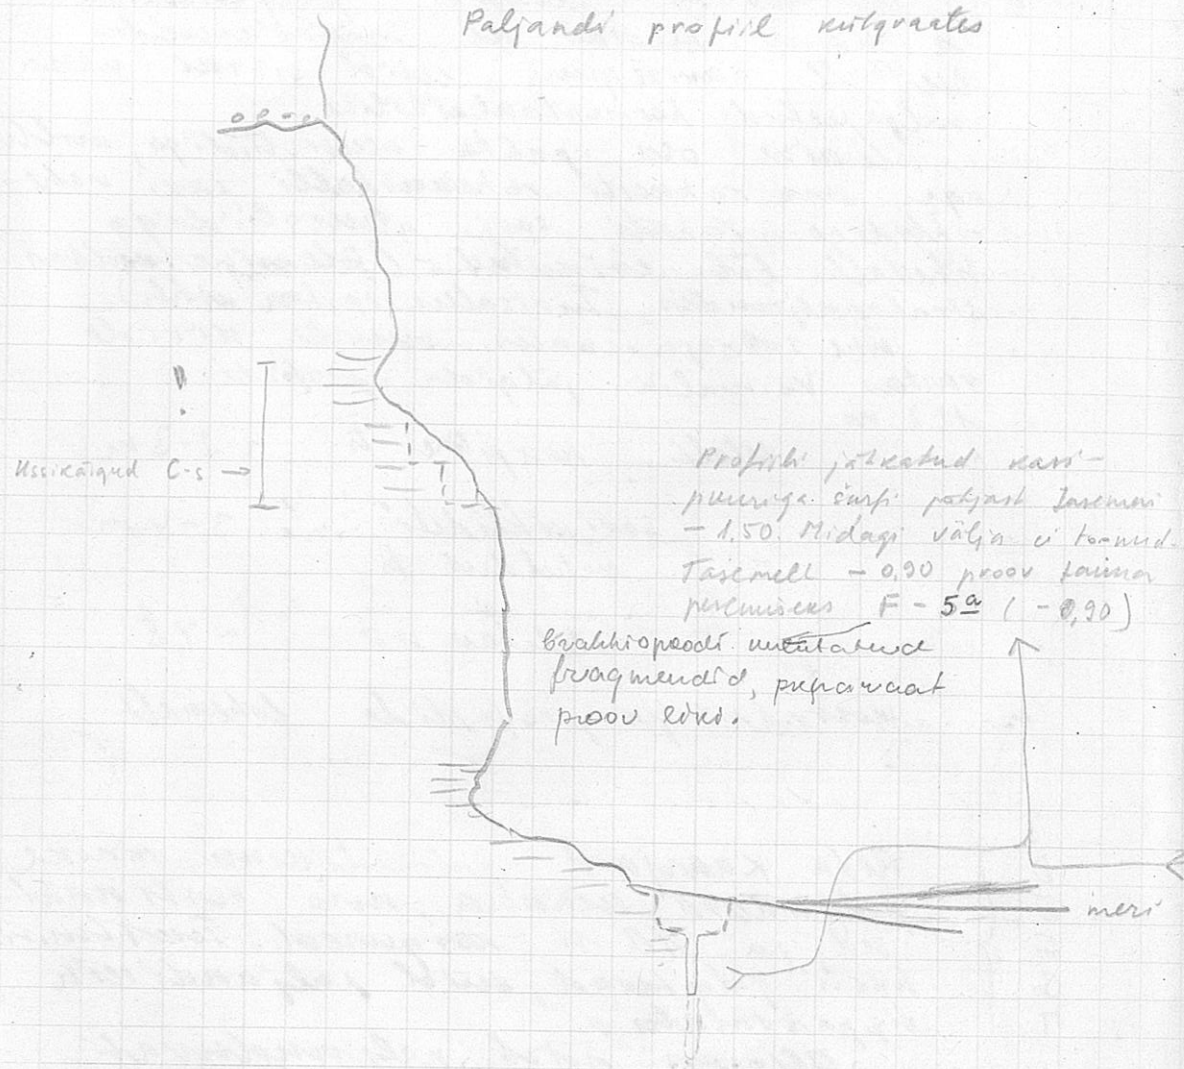 Paljandi profiil külgvaates
!
Ussikäigud C-s →
Profiili jätkatud käsi-
puuriga šurfi põhjast tasemeni
- 1.50. Midagi välja ei toonud.
Tasemelt - 0,90 proov fauna
pesemiseks F - 5a (- 0,90)
Brahhiopoodi
fragmendid, preparaat
proov
meri